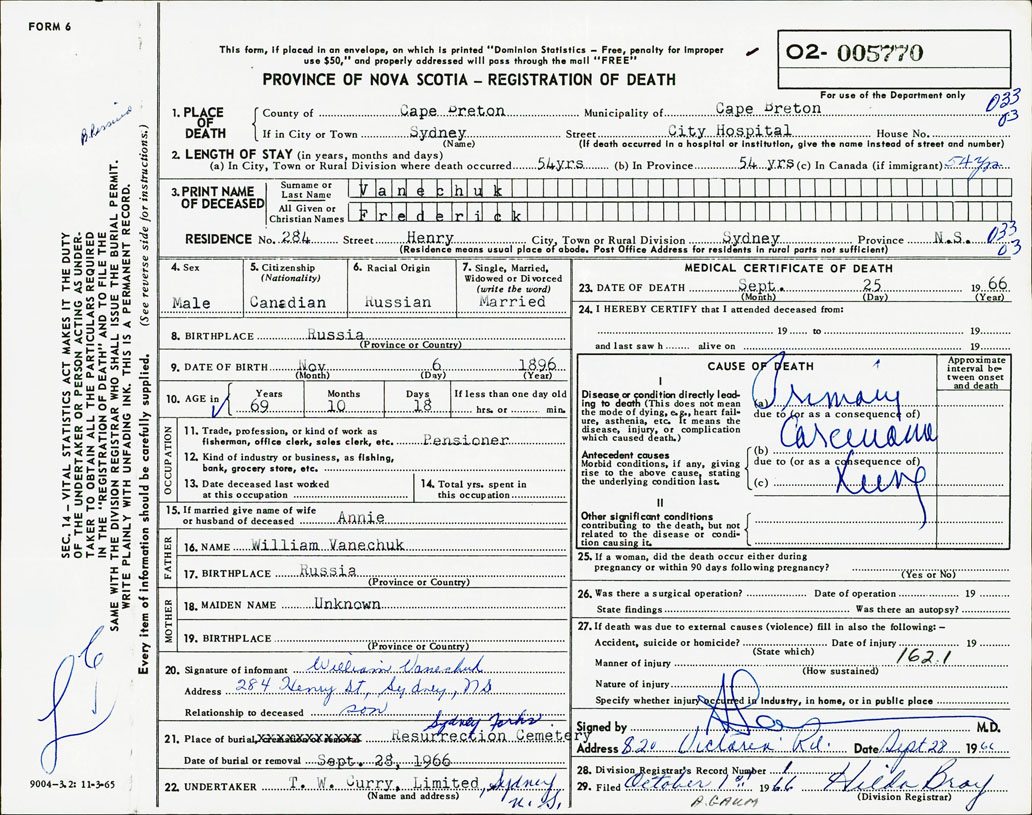 FORM 6
This form, if placed in an envelope, on which is printed "Dominion Statistics – Free, penalty for improper
use $50," and properly addressed will pass through the mail "FREE"
PROVINCE OF NOVA SCOTIA – REGISTRATION OF DEATH
02- 005770
For use of the Department only
033
03
1. PLACE OF DEATH
County of Cape Breton Municipality of Cape Breton
If in City or Town Sydney Street City Hospital House No.
(Name) (If death occurred in a hospital or institution, give the name instead of street and number)
2. LENGTH OF STAY (in years, months and days)
(a) In City, Town or Rural Division where death occurred 54yrs (b) In Province 54 yrs (c) In Canada (if immigrant) 54 yrs
3. PRINT NAME OF DECEASED
Surname or Last Name Vanechuk
All Given or Christian Names Frederick
RESIDENCE No. 284 Street Henry City, Town or Rural Division Sydney Province N.S.
033
03
(Residence means usual place of abode. Post Office Address for residents in rural parts not sufficient)
4. Sex
Male
5. Citizenship (Nationality)
Canadian
6. Racial Origin
Russian
7. Single, Married, Widowed or Divorced (write the word)
Married
8. BIRTHPLACE Russia
(Province or Country)
9. DATE OF BIRTH Nov 6 1896
(Month) (Day) (Year)
10. AGE in Years Months Days If less than one day old
69 10 18 hrs. or min.
OCCUPATION
11. Trade, profession, or kind of work as
fisherman, office clerk, sales clerk, etc. Pensioner
12. Kind of industry or business, as fishing,
bank, grocery store, etc.
13. Date deceased last worked
at this occupation
14. Total yrs. spent in
this occupation
15. If married give name of wife
or husband of deceased Annie
FATHER
16. NAME William Vanechuk
17. BIRTHPLACE Russia
(Province or Country)
MOTHER
18. MAIDEN NAME Unknown
19. BIRTHPLACE
(Province or Country)
20. Signature of informant William Vanechuk
Address 284 Henry St, Sydney, NS
Relationship to deceased son
Sydney Forks
21. Place of burial XXXXXXXXXXXXX Resurrection Cemetery
Date of burial or removal Sept. 28, 1966
22. UNDERTAKER T. W. Curry, Limited, Sydney
(Name and address) N.S.
MEDICAL CERTIFICATE OF DEATH
23. DATE OF DEATH Sept. 25 1966
(Month) (Day) (Year)
24. I HEREBY CERTIFY that I attended deceased from:
19 to 19
and last saw h alive on 19
CAUSE OF DEATH
Approximate interval between onset and death
I
Disease or condition directly lead-
ing to death (This does not mean
the mode of dying, e.g., heart fail-
ure, asthenia, etc. It means the
disease, injury, or complication
which caused death.)
(a) Primary
due to (or as a consequence of)
Carcinoma
Antecedent causes
Morbid conditions, if any, giving
rise to the above cause, stating
the underlying condition last.
(b)
due to (or as a consequence of)
(c) Lung
II
Other significant conditions
contributing to the death, but not
related to the disease or condi-
tion causing it.
25. If a woman, did the death occur either during
pregnancy or within 90 days following pregnancy?
(Yes or No)
26. Was there a surgical operation? Date of operation 19
State findings Was there an autopsy?
27. If death was due to external causes (violence) fill in also the following: –
Accident, suicide or homicide? Date of injury 19
(State which) 162.1
Manner of injury
(How sustained)
Nature of injury
Specify whether injury occurred in industry, in home, or in public place
Signed by M.D.
Address 820 Victoria Rd. Date Sept 28 1966
28. Division Registrar's Record Number
29. Filed October 1st 1966 Hilda Bray
(Division Registrar)
SEC. 14 – VITAL STATISTICS ACT MAKES IT THE DUTY
OF THE UNDERTAKER OR PERSON ACTING AS UNDER-
TAKER TO OBTAIN ALL THE PARTICULARS REQUIRED
IN THE "REGISTRATION OF DEATH" AND TO FILE THE
SAME WITH THE DIVISION REGISTRAR WHO SHALL ISSUE THE BURIAL PERMIT.
WRITE PLAINLY WITH UNFADING INK. THIS IS A PERMANENT RECORD.
Every item of information should be carefully supplied. (See reverse side for instructions.)
9004–3.2: 11-3-65